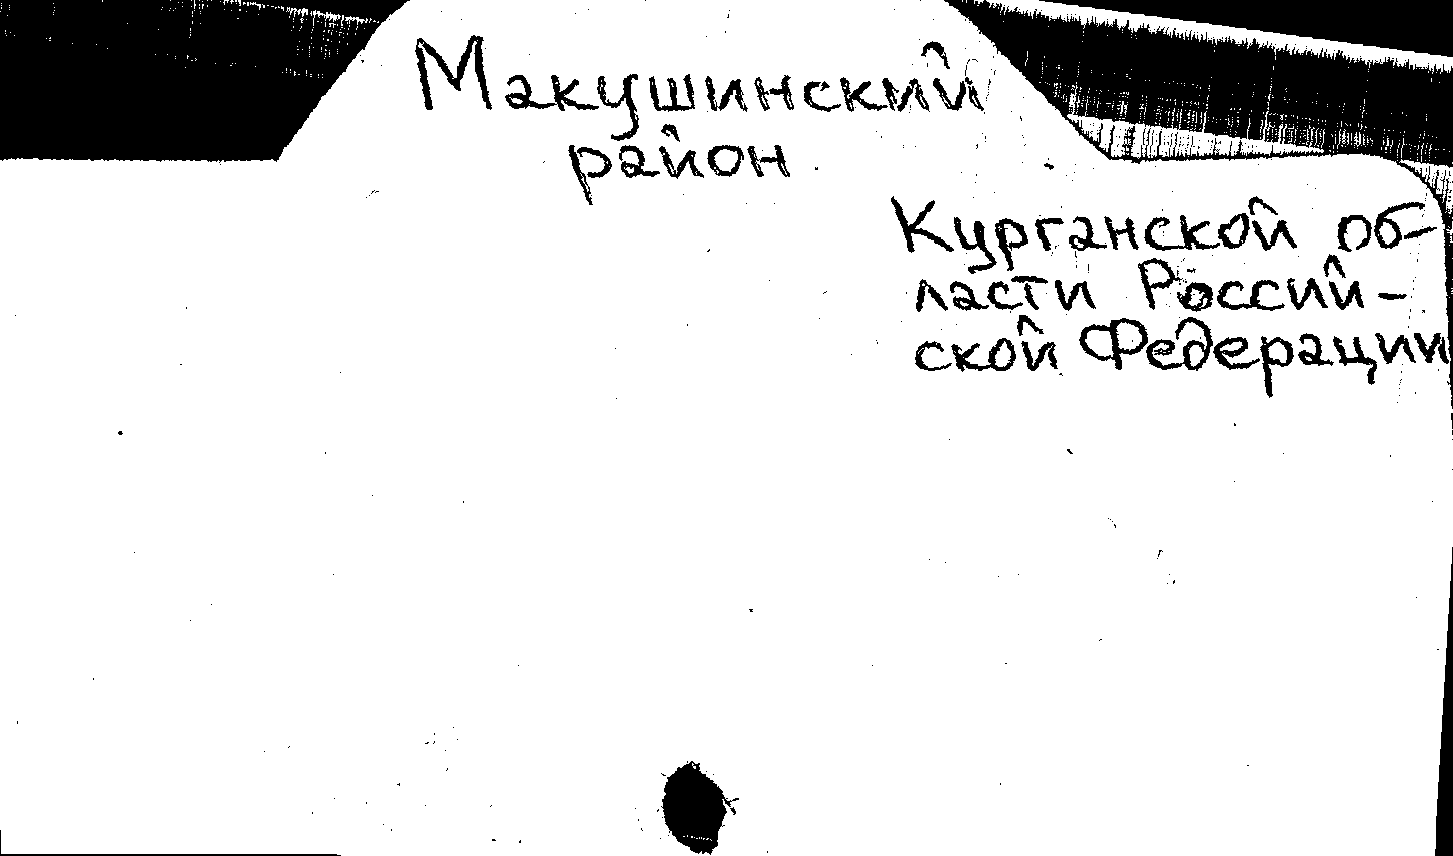 Макушинский
район
Курганской об-
ласти Россий-
ской Федерации